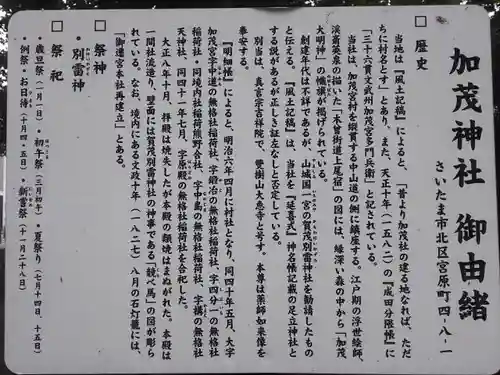 加茂神社 御由緒
さいたま市北区宮原町四-八-一
□ 歴史
当地は『風土記稿』によると、「昔より加茂社の建る地なれば、ただ
ちに村名とす」とあり、また、天正十年(一五八二)の『成田分限帳』に
「三十六貫文武州加茂宮多門兵衛」と記されている。
当社は、加茂宮村を縦貫する中山道の側に鎮座する。江戸期の浮世絵師、
渓斎英泉の描いた「木曽街道上尾宿」の図には、緑深い森の中から「加茂
大明神」の幟旗が掲げられている。
創建年代は不詳であるが、山城国一宮の賀茂別雷神社を勧請したもの
と伝える。『風土記稿』は、当社を『延喜式』神名帳記載の足立神社と
する説があるが正しき証左なしと否定している。
別当は、真言宗吉祥院で、雙樹山大悲寺と号す。本尊は薬師如来像を
奉安する。
『明細帳』によると、明治六年四月に村社となり、同四十年五月、大字
加茂宮字中道の無格社稲荷社、字鍛冶の無格社稲荷社、字四分一の無格社
稲荷社・同境内社稲荷熊野合社、字中島の無格社稲荷社、字溝の無格社
天神社、同四十一年七月、字原殿の無格社稲荷社を合祀した。
大正八年十月、拝殿は焼失したが本殿の類焼はまぬがれた。本殿は
一間社流造り、壁面には賀茂別雷神社の神事である「競べ馬」の図が彫ら
れている。なお、境内にある文政十年(一八二七)八月の石灯籠には、
「御遷宮本社再建立」とある。
□ 祭神
・別雷神
わけいかづちのかみ
□ 祭祀
・歳旦祭(一月一日)・初午祭(三月初午)・夏祭り(七月十四日、十五日)
・例祭・お日待(十月四・五日)・新嘗祭(十一月二十八日)